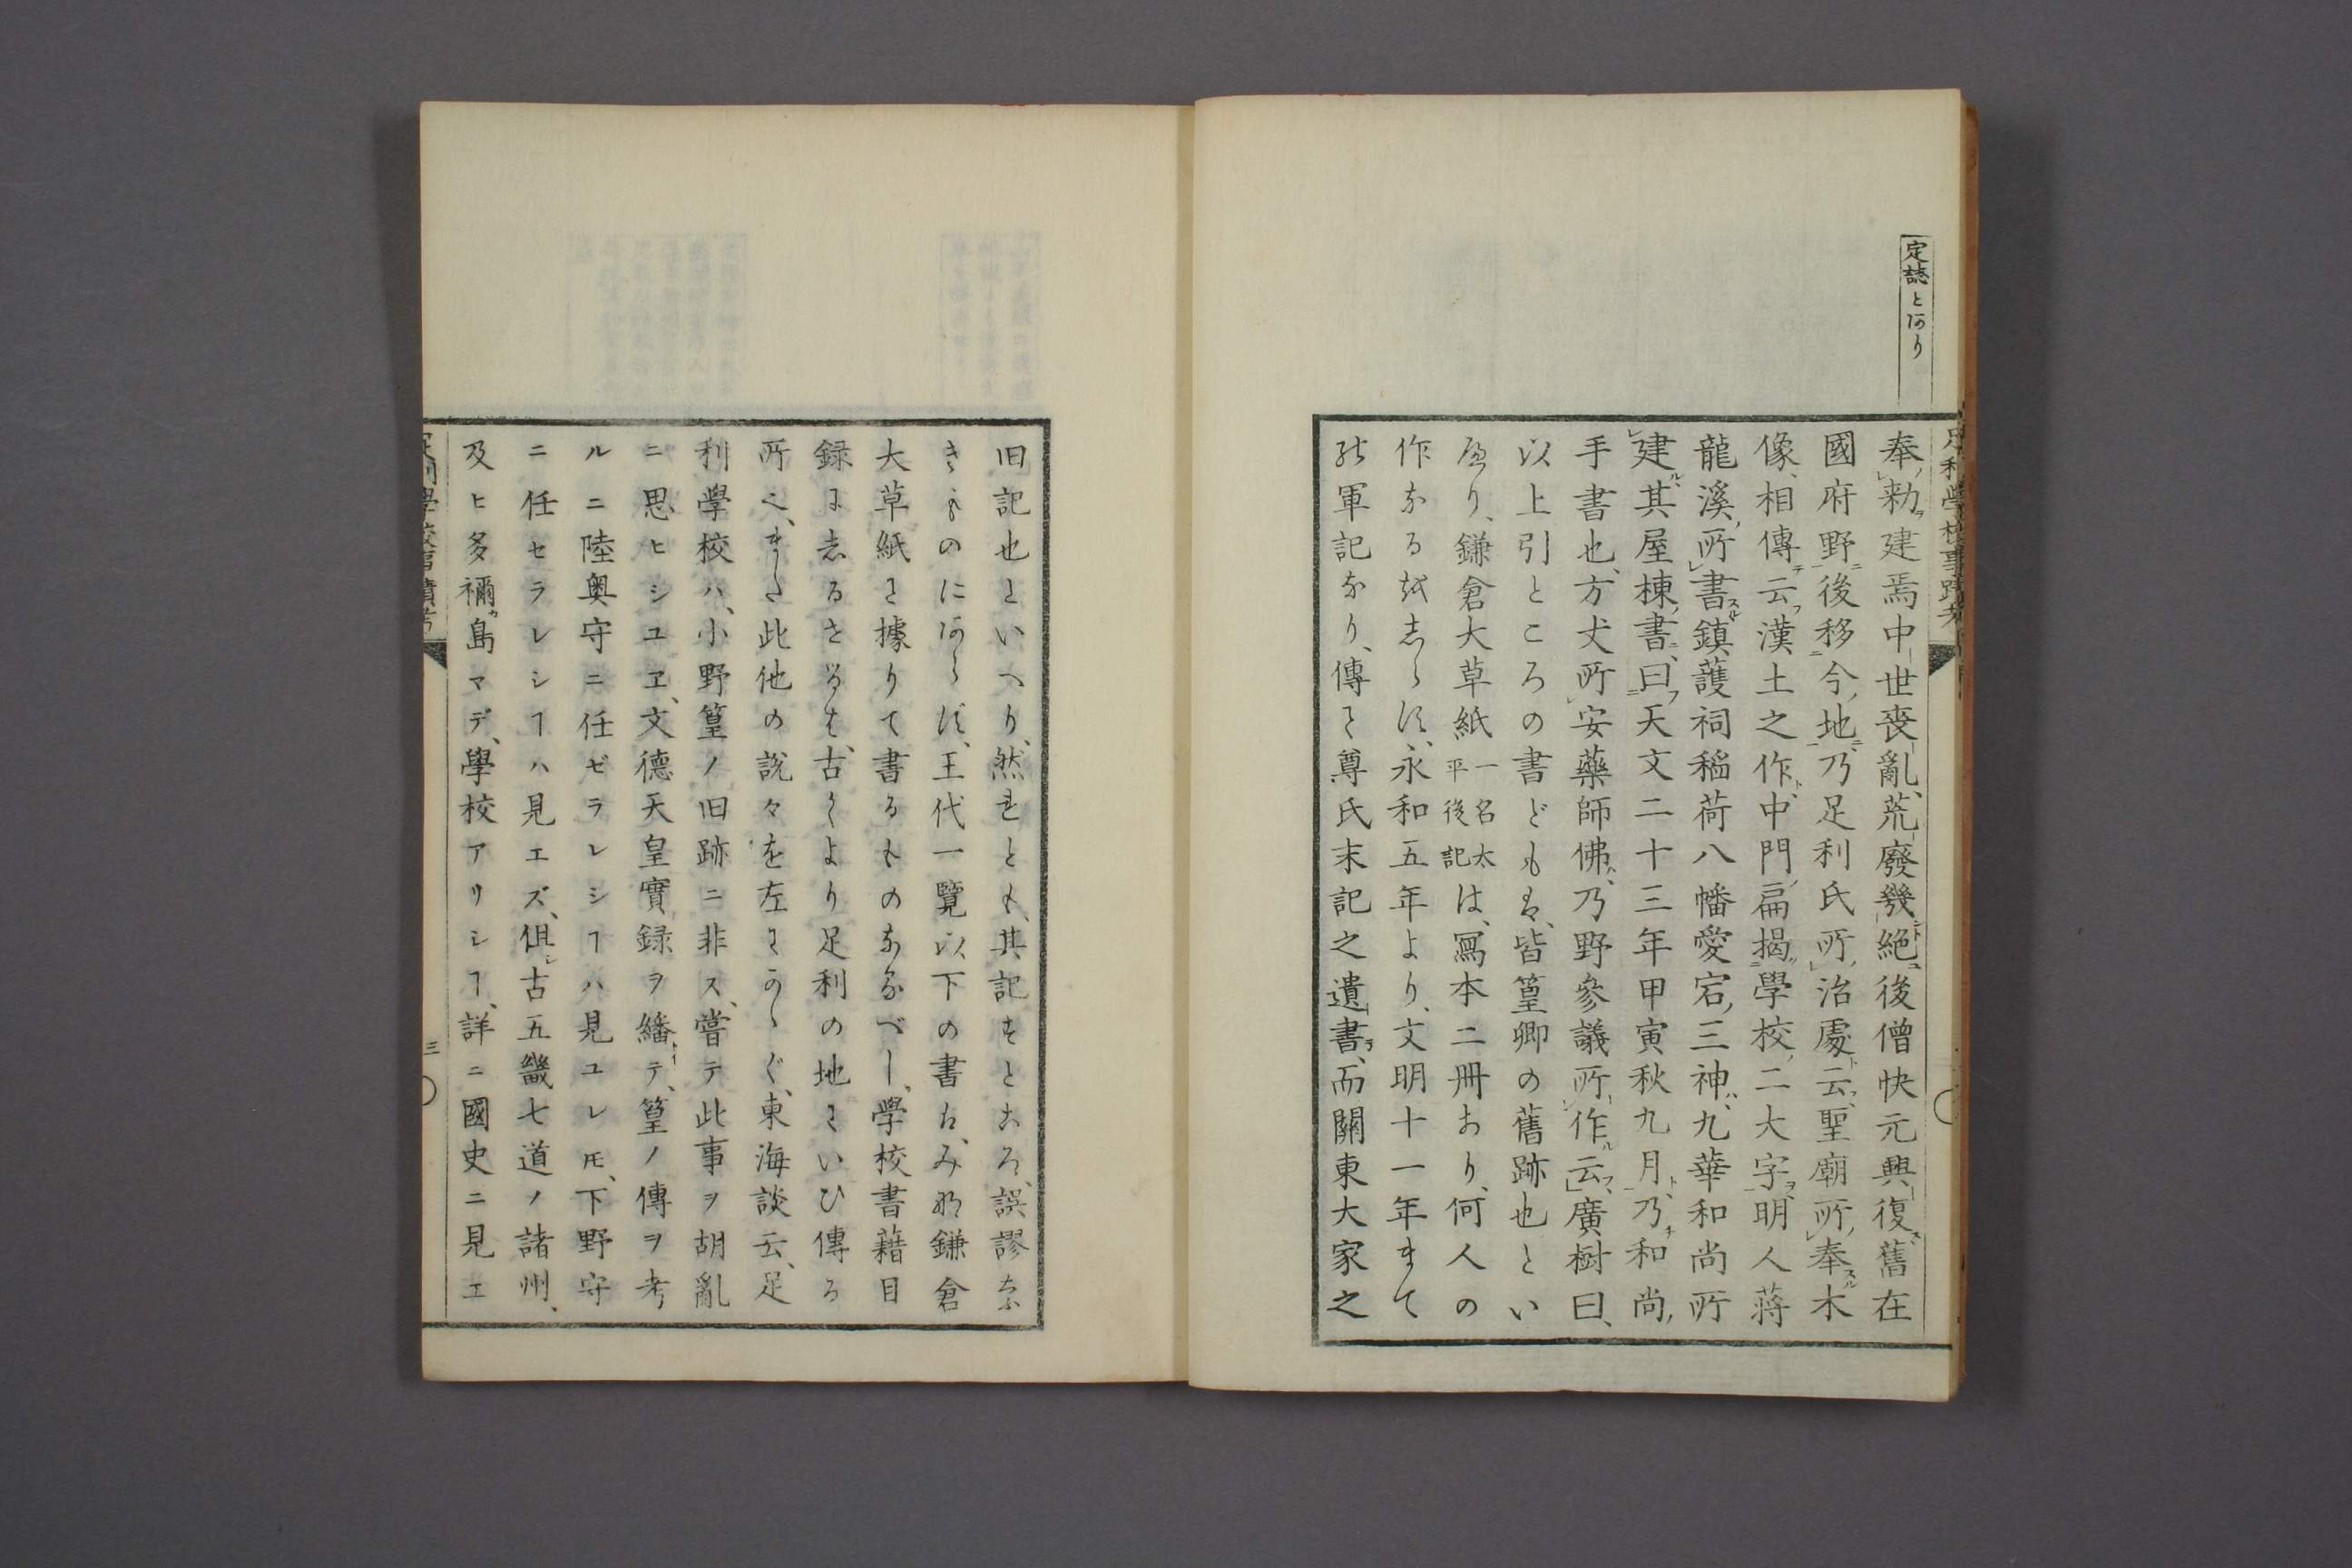 定誌とあり
足利學校事蹟考
奉勅建焉中世喪亂、荒廢幾絕後僧快元興復舊在
國府野後移今地、乃足利氏所治處云、聖廟所奉木
像、相傳云漢土之作、中門扁揭學校二大字、明人蔣
龍溪所書、鎮護祠稻荷八幡愛宕三神、九華和尚所
建其屋棟書曰、天文二十三年甲寅秋九月、乃和尚
手書也、方丈所安藥師佛、乃野參議所作云、廣樹曰、
以上引ところの書どもは、皆篁卿の舊跡也とい
へり、鎌倉大草紙一名太平後記は、寫本二冊あり、何人の
作なる越志らす、永和五年より、文明十一年まて
の軍記なり、傳て尊氏末記之遺書、而關東大家之
旧記也といへり、然れとも、其記すところ、誤謬な
きものにあらず、王代一覽以下の書は、みな鎌倉
大草紙に據りて書るものなるべし、學校書籍目
録に志るさゝるは、古くより足利の地にいひ傳る
所也、また此他の說々を左にかゝぐ、東海談云、足
利學校ハ、小野篁ノ旧跡ニ非ス、嘗テ此事ヲ胡亂
ニ思ヒシユヱ、文德天皇實録ヲ繙テ、篁ノ傳ヲ考
ルニ陸奧守ニ任ゼラレシヿハ見ユレ𪜈、下野守
ニ任セラレシヿハ見エズ、但古五畿七道ノ諸州、
及ヒ多禰島マデ、學校アリシヿ、詳ニ國史ニ見エ
足利學校事蹟考
三